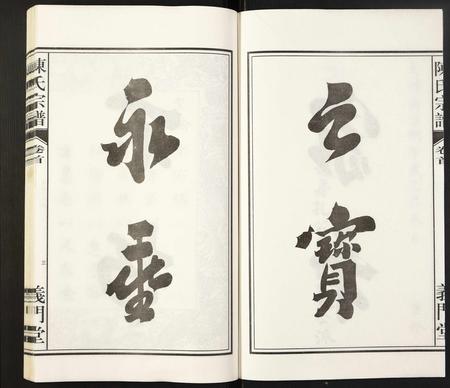 陳氏宗譜
卷首
義門堂
之寶
永垂
陳氏宗譜
卷首
三
義門堂